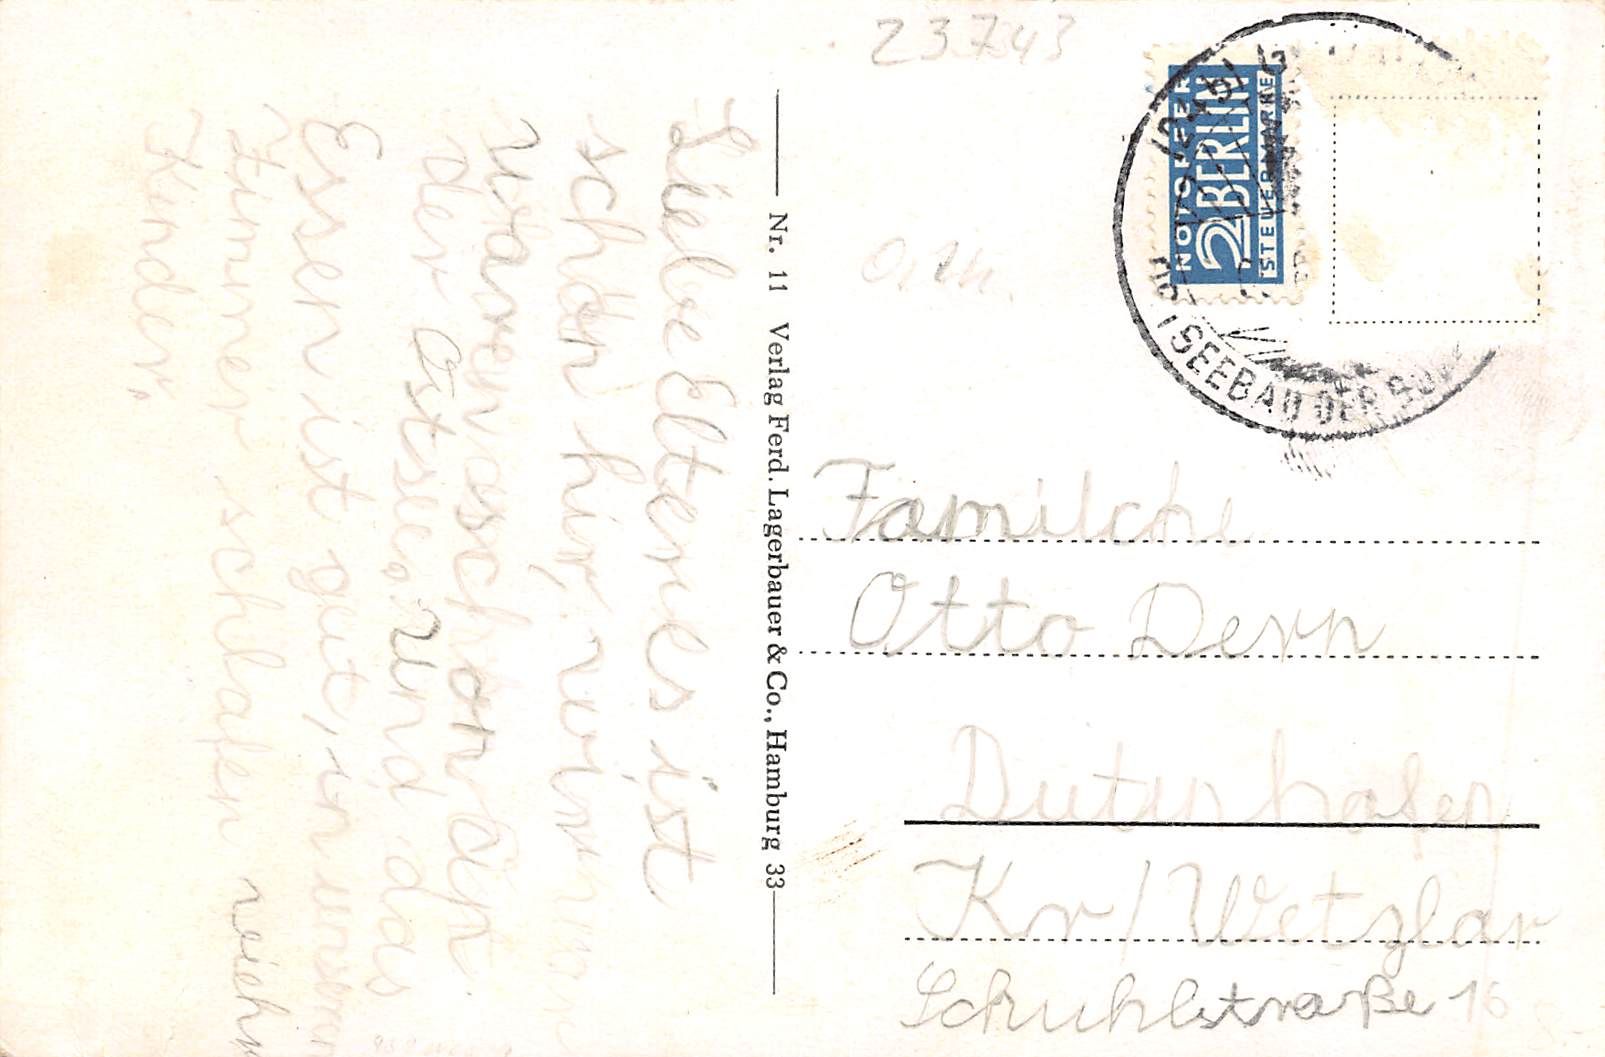 23.743
Liebe Eltern es ist
schön hir, wir
waren asschon an
der Ostsee. Und das
Essen ist gut, in unseren
Zimmer schlafen
Kinder.
Nr. 11 Verlag Ferd. Lagerbauer & Co., Hamburg 33
NOTOPFER
2 BERLIN
STEUERMARKE
SEEBAD DER
Familche
Otto Dern
Dutenhofen
Kr/Wetzlar
Schuhlstraße 16